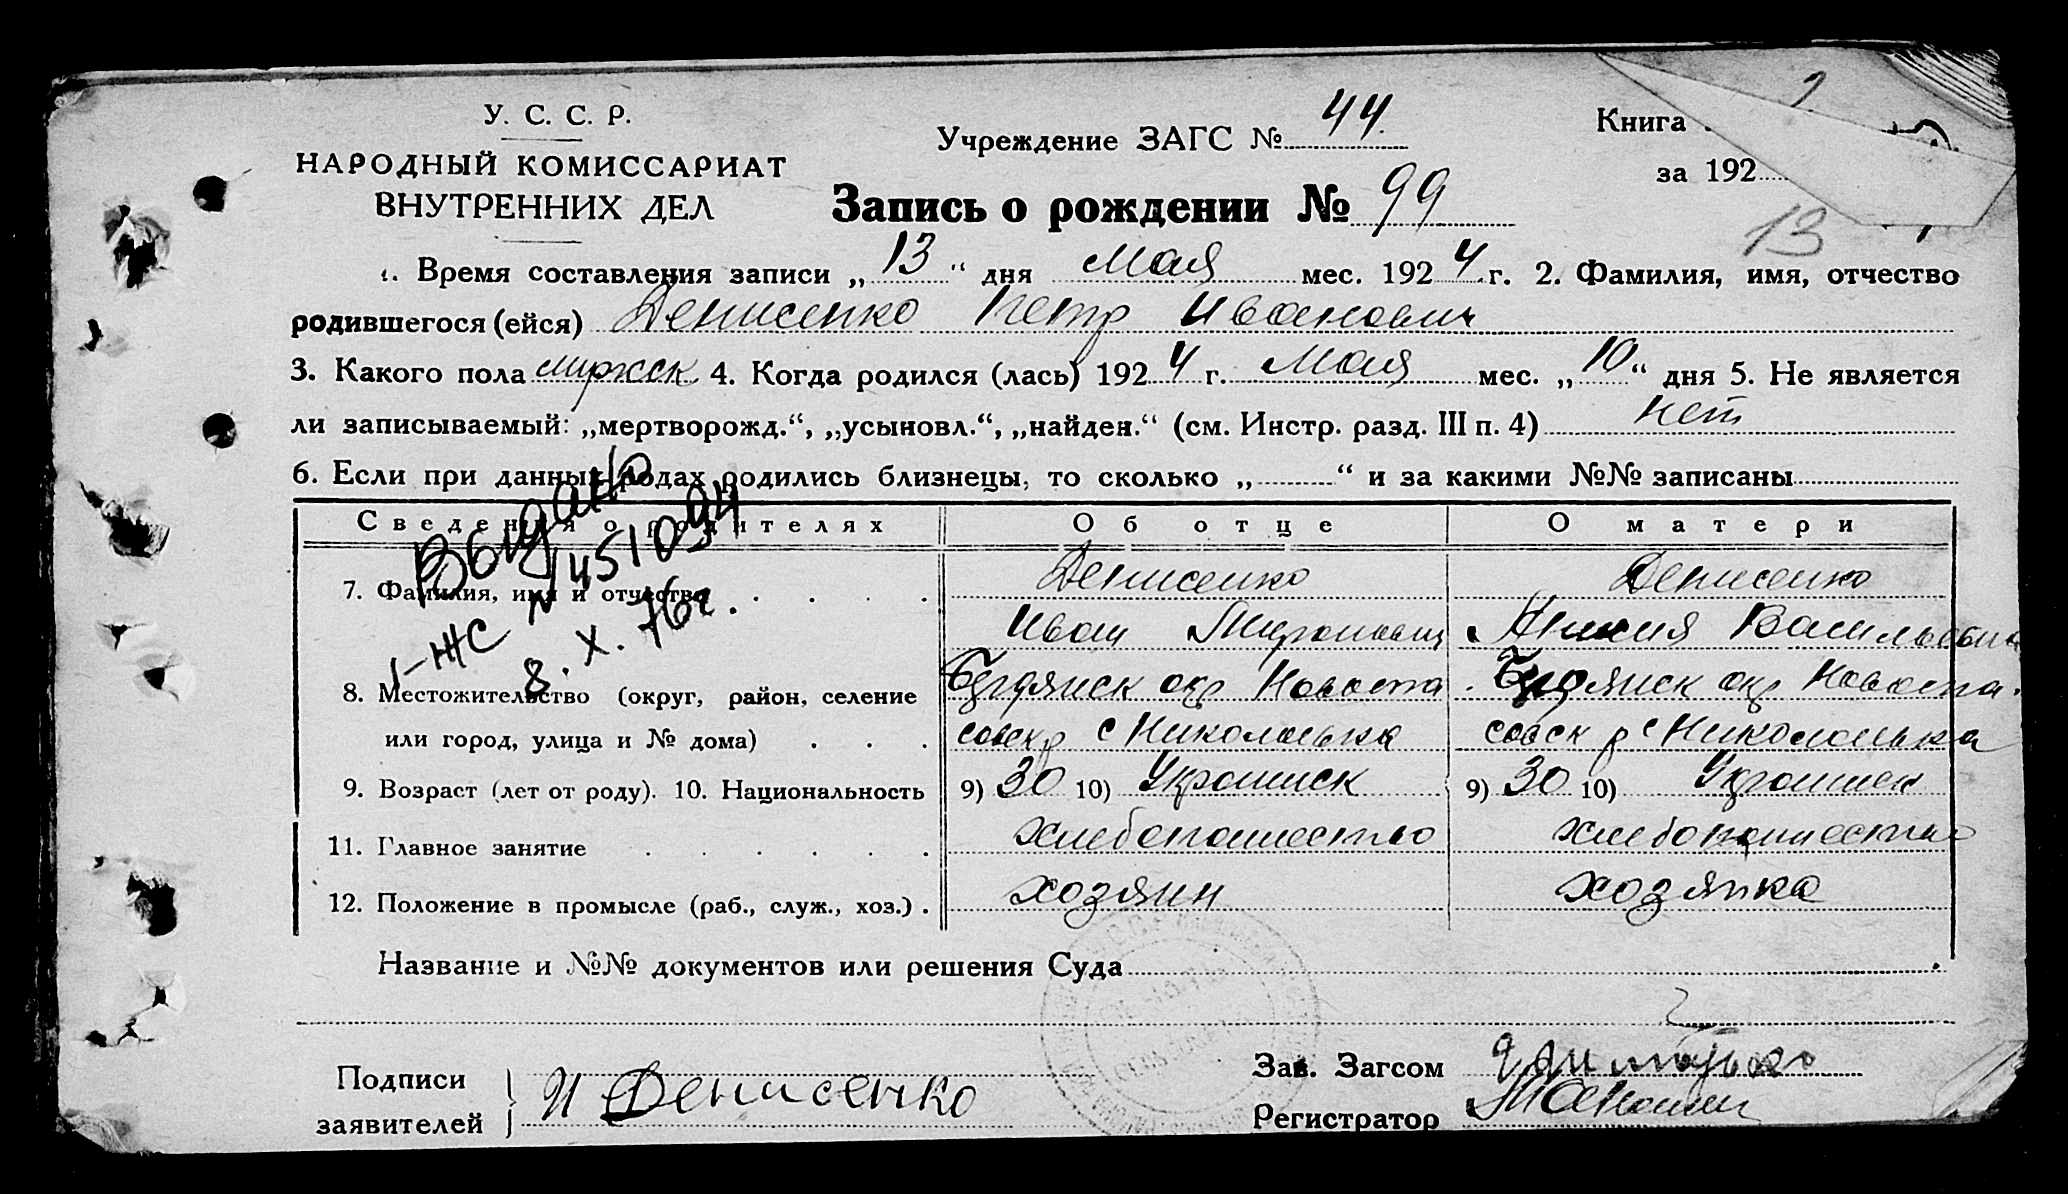 У. С. С. Р.
НАРОДНЫЙ КОМИССАРИАТ
ВНУТРЕННИХ ДЕЛ
Учреждение ЗАГС № 44.
Книга
за 192
Запись о рождении № 99
13
1. Время составления записи „13“ дня Мая мес. 1924 г. 2. Фамилия, имя, отчество
родившегося (ейся) Денисенко Петр Иванович
3. Какого пола мужск 4. Когда родился (лась) 1924 г. Мая мес. „10“ дня 5. Не является
ли записываемый: „мертворожд.“, „усыновл.“, „найден.“ (см. Инстр. разд. III п. 4) нет
6. Если при данных родах родились близнецы, то сколько „ “ и за какими №№ записаны
Сведения о родителях Об отце О матери
Выдано
1-ЖС № 451094
8. X. 76г.
7. Фамилия, имя и отчество Денисенко Денисенко
Иван Миронович Васильевна
8. Местожительство (округ, район, селение Бердянск окр Новоспа Бердянск окр Новоспа.
или город, улица и № дома) совск р с Николаевка совск р с Николаевка
9. Возраст (лет от роду). 10. Национальность 9) 30 10) Украинск 9) 30 10) Украинск
11. Главное занятие хлебопашество хлебопашество
12. Положение в промысле (раб., служ., хоз.) хозяин хозяйка
Название и №№ документов или решения Суда
Подписи
заявителей
И Денисенко
Зав. Загсом
Регистратор